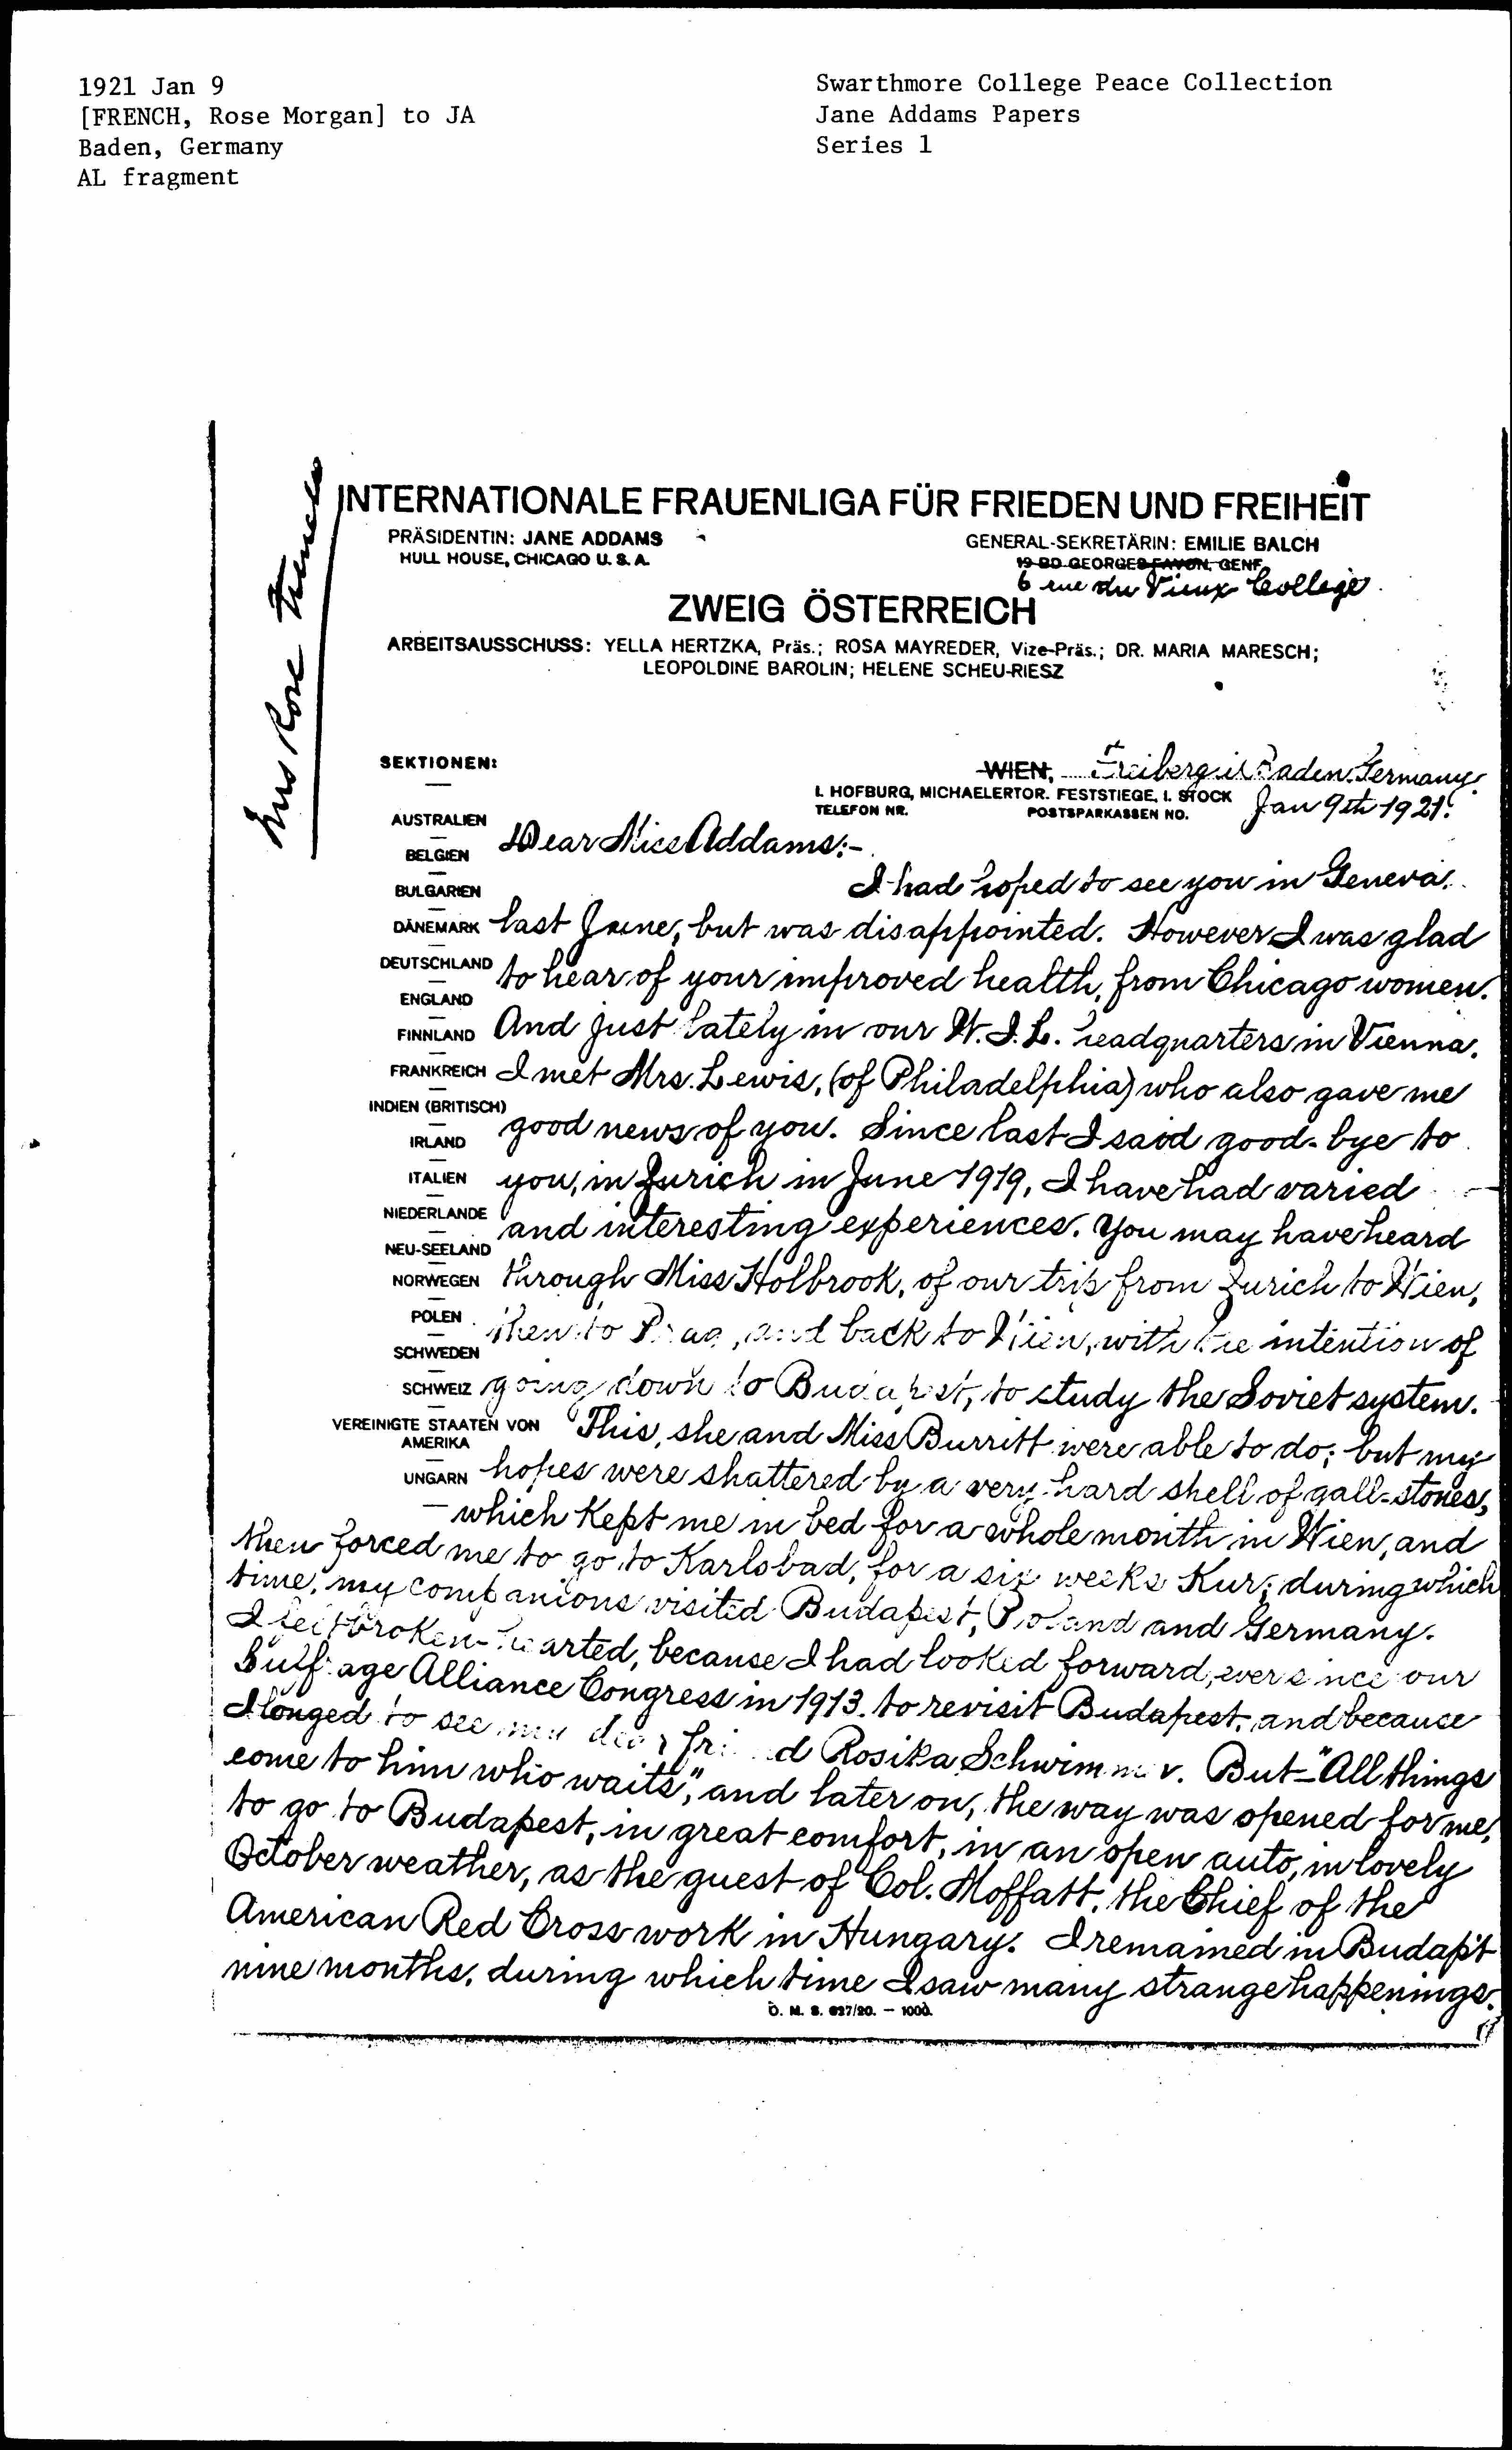 1921 Jan 9
[FRENCH, Rose Morgan] to JA
Baden, Germany
AL fragment
Swarthmore College Peace Collection
Jane Addams Papers
Series 1
Mrs Rose
INTERNATIONALE FRAUENLIGA FÜR FRIEDEN UND FREIHEIT
PRÄSIDENTIN: JANE ADDAMS
HULL HOUSE, CHICAGO U. S. A.
GENERAL-SEKRETÄRIN: EMILIE BALCH
19 BD GEORGES FAVON, GENF
6 rue du Vieux College
ZWEIG ÖSTERREICH
ARBEITSAUSSCHUSS: YELLA HERTZKA, Präs.; ROSA MAYREDER, Vize-Präs.; DR. MARIA MARESCH;
LEOPOLDINE BAROLIN; HELENE SCHEU-RIESZ
WIEN, Freiberg in Baden. Germany.
I. HOFBURG, MICHAELERTOR. FESTSTIEGE, I. STOCK
TELEFON NR. POSTSPARKASSEN NO.
Jan 9th 1921.
SEKTIONEN:
AUSTRALIEN
BELGIEN
BULGARIEN
DÄNEMARK
DEUTSCHLAND
ENGLAND
FINNLAND
FRANKREICH
INDIEN (BRITISCH)
IRLAND
ITALIEN
NIEDERLANDE
NEU-SEELAND
NORWEGEN
POLEN
SCHWEDEN
SCHWEIZ
VEREINIGTE STAATEN VON
AMERIKA
UNGARN
Dear Miss Addams:-
I had hoped to see you in Geneva.
last June, but was disappointed. However I was glad
to hear of your improved health, from Chicago women.
And just lately in our W.I.L. headquarters in Vienna.
I met Mrs. Lewis, (of Philadelphia) who also gave me
good news of you. Since last I said good-bye to
you, in Zurich in June 1919, I have had varied
and interesting experiences. You may have heard
through Miss Holbrook, of our trip from Zurich to Wien,
then to Prag, and back to Wien, with the intention of
going down to Budapest, to study the Soviet system.
This, she and Miss Burritt were able to do; but my
hopes were shattered by a very hard shell of gall-stones,
which kept me in bed for a whole month in Wien, and
then forced me to go to Karlsbad, for a six weeks Kur; during which
time, my companions visited Budapest, Poland and Germany.
I felt broken-hearted, because I had looked forward, ever since our
Suffrage Alliance Congress in 1913. to revisit Budapest, and because
I longed to see my dear friend Rosika Schwimmer. But-"All things
come to him who waits", and later on, the way was opened for me,
to go to Budapest, in great comfort, in an open auto, in lovely
October weather, as the guest of Col. Moffatt, the Chief of the
American Red Cross work in Hungary. I remained in Budap't
nine months, during which time I saw many strange happenings.
Ö. M. S. 627/20. – 1000.